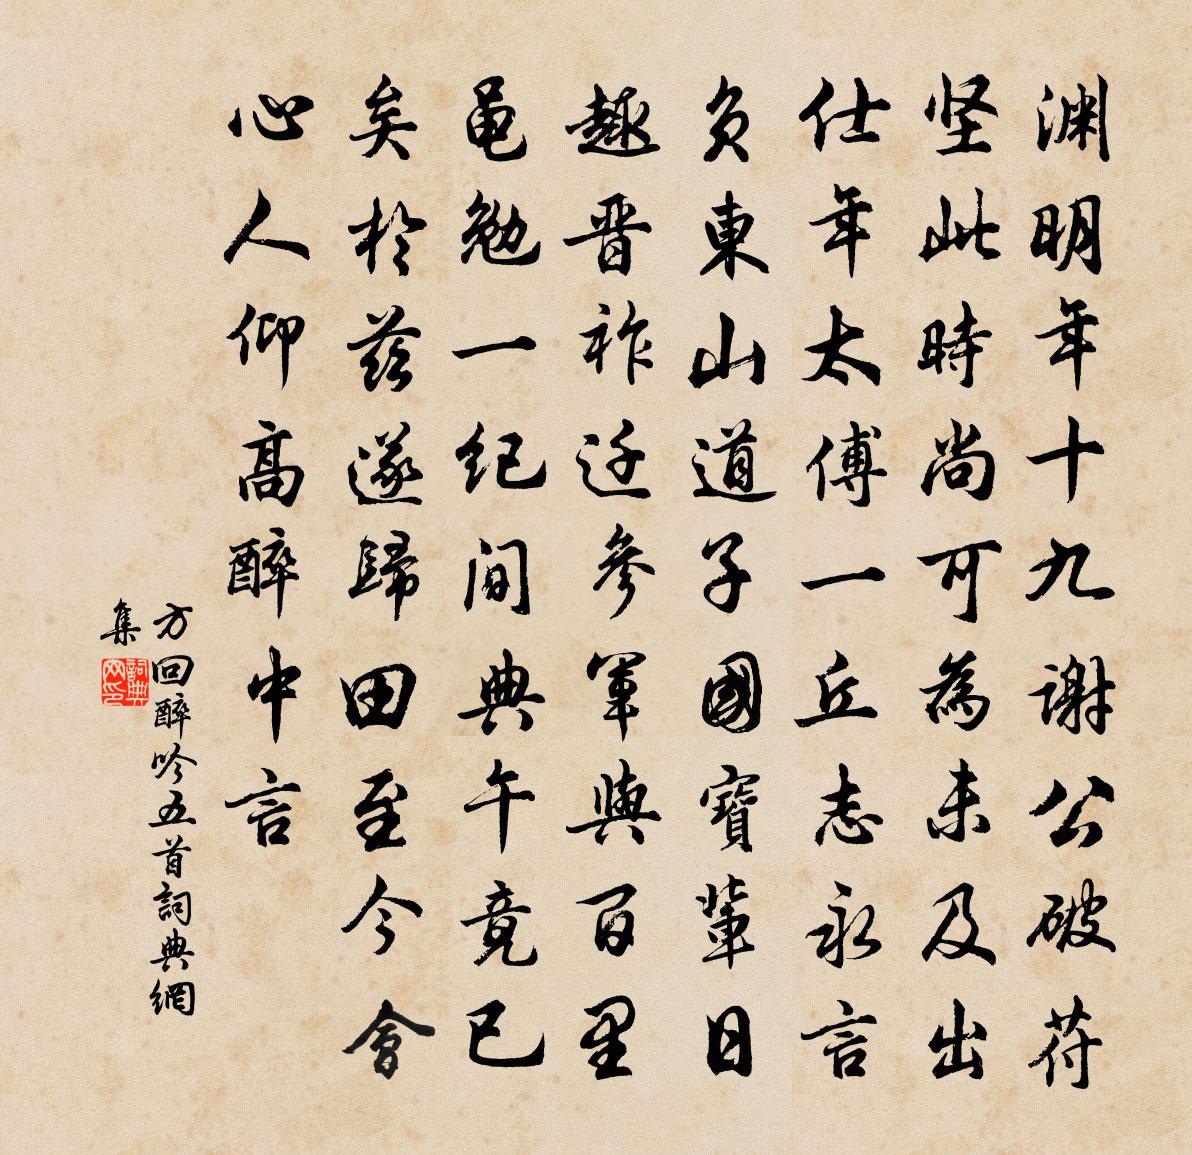 渊明年十九謝公破苻
坚此時尚可為未及出
仕年太傅一丘志永言
負東山道子國寶輩日
趣晋祚迁参軍與百里
黾勉一纪间典午竟已
矣於兹遂歸田至今會
心人仰高醉中言
方回醉吟五首詞典網
集
詞典
网印